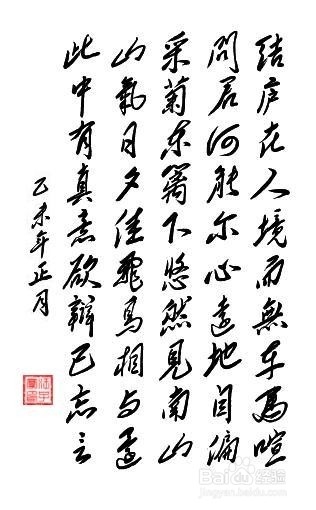 结庐在人境而無车馬喧
问君何能尔心遠地自偏
采菊东篱下悠然見南山
山氣日夕佳飛鳥相与還
此中有真意欲辯已忘言
乙未年正月
Baidu 经验
jingyan.baidu.com